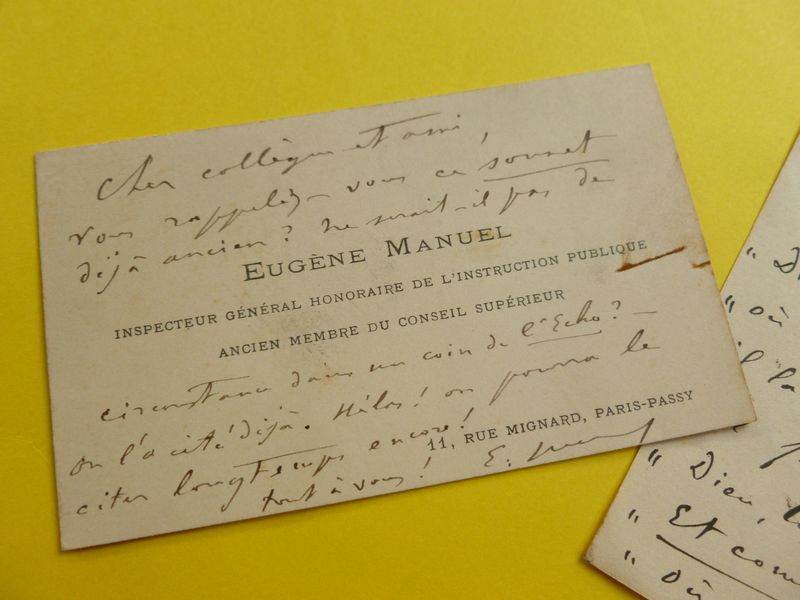 Cher collègue et ami,
vous rappelez-vous ce sonnet
déjà ancien? Ne serait-il pas de
EUGÈNE MANUEL
INSPECTEUR GÉNÉRAL HONORAIRE DE L'INSTRUCTION PUBLIQUE
ANCIEN MEMBRE DU CONSEIL SUPÉRIEUR
circonstance dans un coin de l'Echo? —
On l'a cité déjà. Hélas! on pourra le
citer longtemps encore!
11, RUE MIGNARD, PARIS-PASSY
tout à vous! E. Manuel
"
" où
il la
" Dieu,
" Et
" où